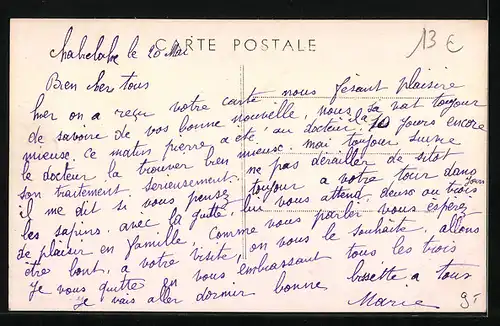 CARTE POSTALE
13 €
le 20 Mai
Bien cher tous
hier on a reçu votre carte nous fesant plaisire
de savoire de vos bonne nouvelle, nous sa vat toujour
mieuse. ce matin pierre a été, au docteur, 10 jours encore
le docteur la trouver bien mieuse. mai toujour suivre
son traitement sereusement. ne pas derailler de sitot
il me dit si vous pensez toujour a votre tour dans
les sapins. avec la gutte, lui vous attend, deuse ou trois jours
de plaisir en famille, comme vous parler vous espérez
être bont, a votre visite, on vous le souhaite, allons
Je vous quitte en vous embrassant tous les trois
Je vais aller dormir bonne a tous
Marie
9.-